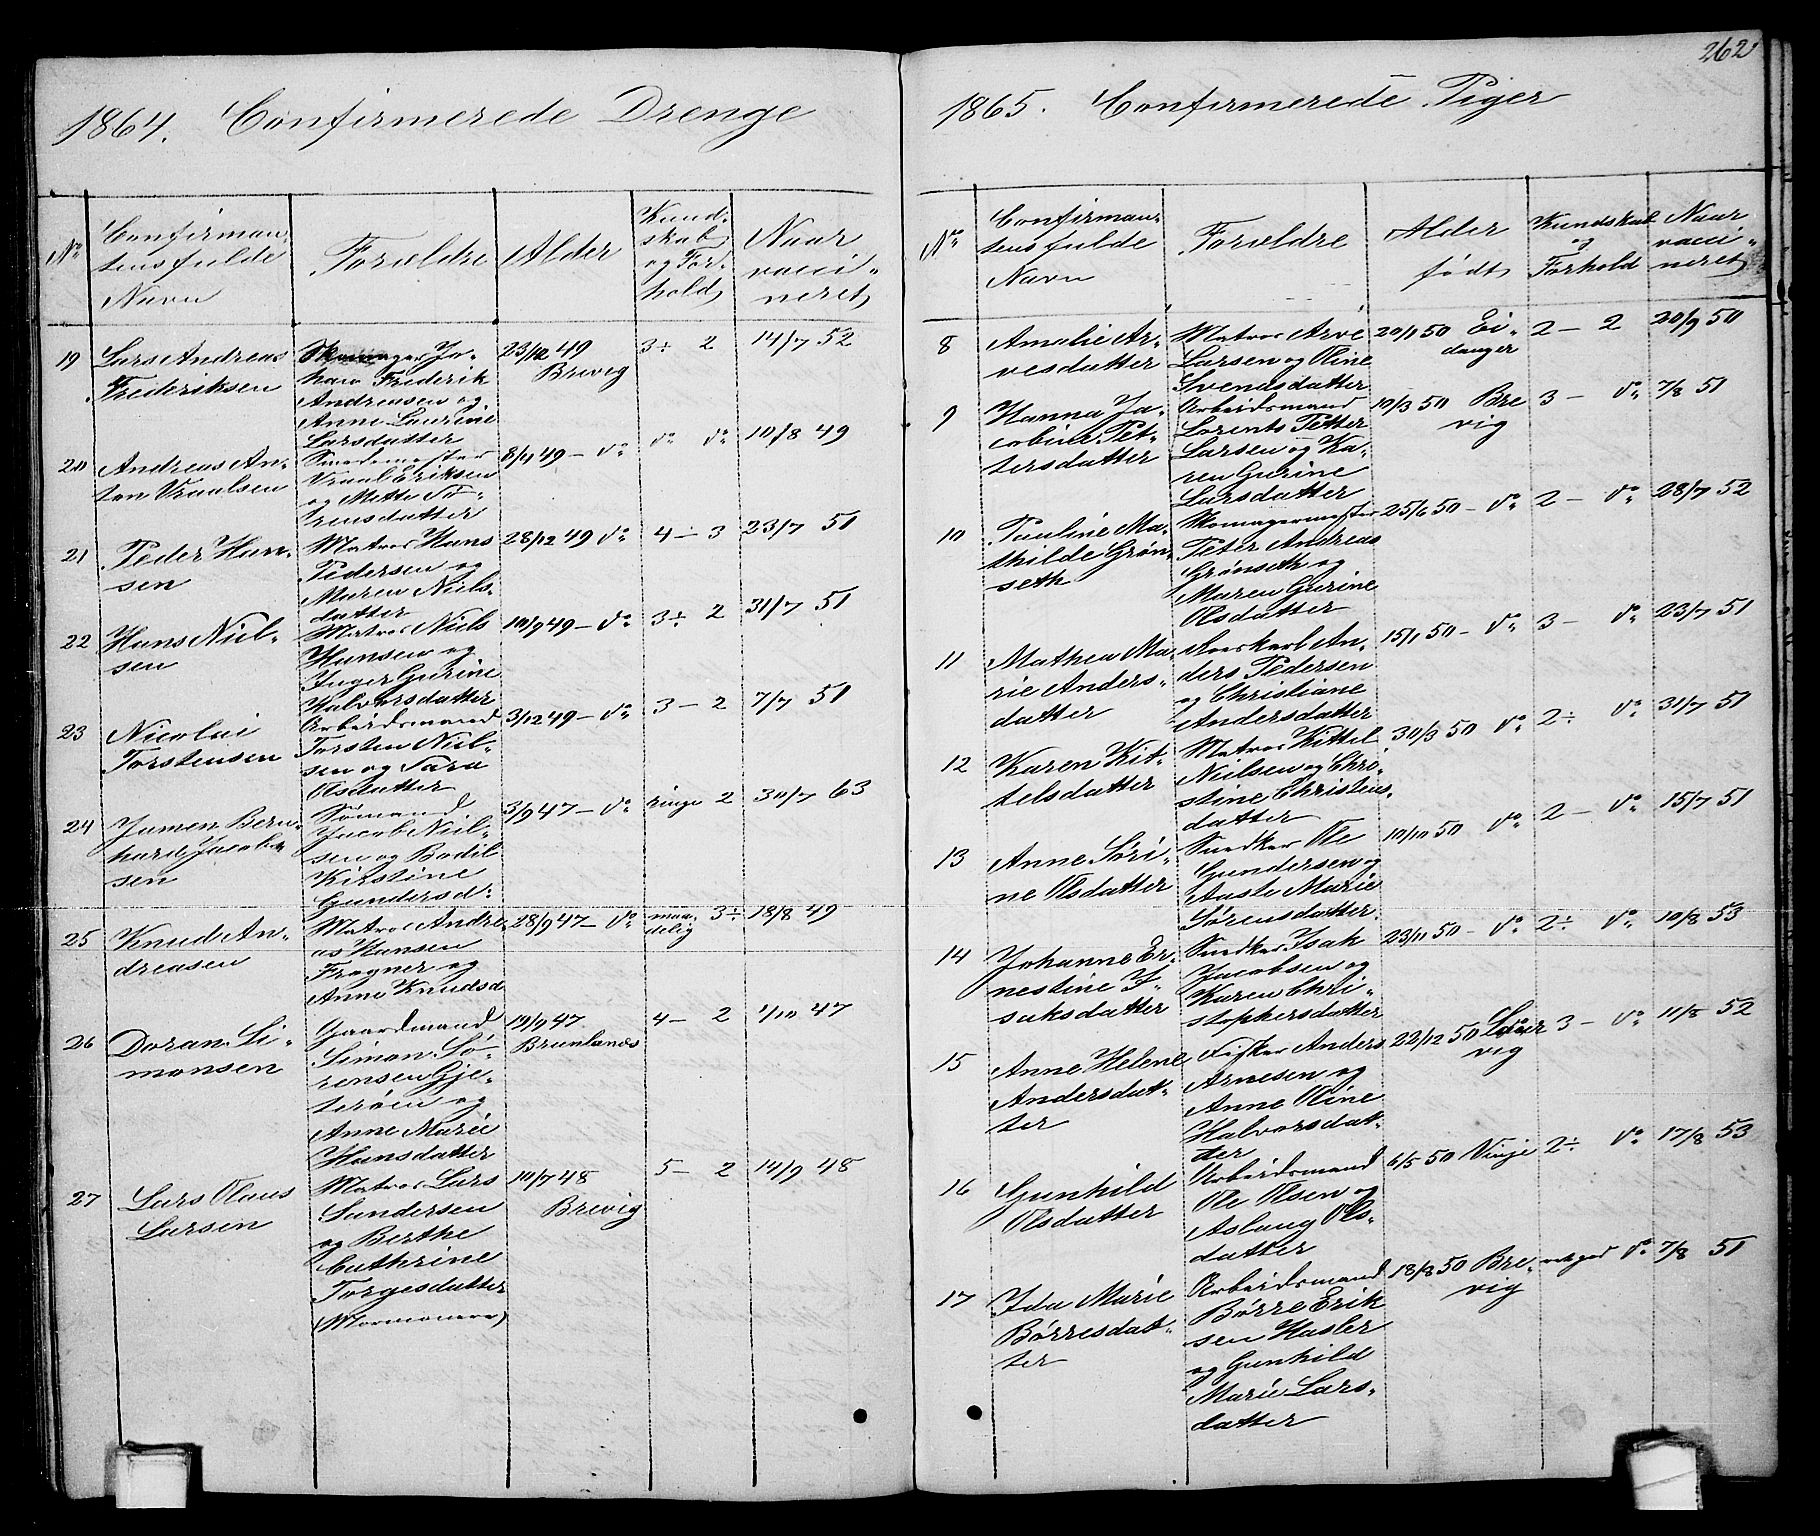 262
1864. Confirmerede Drenge
No
Confirman-
tens fulde
Navn
Forældre
Alder
Kund-
skab
og For-
hold
Naar
vacci-
neret
19
Lars Andreas
Frederiksen
Skomager Jo-
han Frederik
Andreasen og
Anne Laurine
Larsdatter
23/12 49
Brevig
3÷ 2
14/7 52
20
Andreas An-
ton Vraalsen
Smedemester
Vraal Eriksen
og Mette So-
rensdatter
8/11 49 - do
do do
10/8 49
21
Peder Han-
sen
Matros Hans
Pedersen og
Maren Niels-
datter
28/12 49 do
4 - 3
23/7 51
22
Hans Niel-
sen
Matros Niels
Hansen og
Inger Gurine
Halvorsdatter
10/9 49 - do
3÷ 2
31/7 51
23
Nicolai
Torstensen
Arbeidsmand
Torsten Niel-
sen og Sara
Olsdatter
3/12 49 - do
3 - 2
7/7 51
24
Jamen Bern-
hard Jacob-
sen
Sømand
Jacob Niel-
sen og Bodil
Kirstine
Gundersd:
3/9 47 - do
ringe 2
30/7 63
25
Knud An-
dreasen
Matros Andre-
as Hansen
Frogner og
Anne Knudsd
28/9 47 - do
maa-
delig
3÷
18/8 49
26
Doran Si-
monsen
Gaardmand
Simon Sø-
rensen Gje-
terøen og
Anne Marie
Hansdatter
19/9 47
Brunlanæs
4 - 2
1/10 47
27
Lars Olaus
Larsen
Matros Lars
Sandersen
og Berthe
Cathrine
Torgesdatter
(Mormonere)
10/7 48
Brevig
5 - 2
14/9 48
1865. Confirmerede Piger
No
Confirman-
tens fulde
Navn
Forældre
Alder
født
Kundskab
og
Forhold
Naar
vacci-
neret
8
Amalie Ar-
vesdatter
Matros Arve
Larsen og Oline
Svendsdatter
20/1 50 Ei-
danger
2 - 2
20/9 50
9
Hanna Ja-
cobine Pet-
tersdatter
Arbeidsmand
Lorents Petter
Larsen og Ka-
ren Gurine
Larsdatter
10/3 50 Bre
vig
3 - do
7/8 51
10
Pauline Ma-
thilde Grøn-
seth
Skomagermester
Peter Andreas
Grønseth og
Maren Gurine
Olsdatter
25/6 50 - do
2 - do
28/7 52
11
Mathea Ma-
rie Anders-
datter
Aarskarl An-
ders Pedersen
og Christiane
Andersdatter
15/1 50 - do
3 - do
23/7 51
12
Karen Kit-
telsdatter
Matros Kittel
Nielsen og Chri-
stine Christens-
datter
30/3 50 do
2÷ do
31/7 51
13
Anne Søri-
ne Olsdatter
Snedker Ole
Gundersen og
Aaste Marie
Sørensdatter
10/10 50 do
2 - do
15/7 51
14
Johanne Er-
nestine I-
saksdatter
Snedker Isak
Jacobsen og
Karen Chri-
stophersdatter
23/11 50 - do
2÷ do
10/8 53
15
Anne Helene
Andersdat-
ter
Fisker Anders
Arnesen og
Anne Oline
Halvorsdat-
ter
22/12 50
vig
3 - do
11/8 52
16
Gunhild
Olsdatter
Arbeidsmand
Ole Olsen og
Aslaug Ols-
datter
6/5 50 Vinje
2÷ do
17/8 53
17
Ida Marie
Børresdat-
ter
Arbeidsmand
Børre Erik
sen Hasler
og Gunhild
Marie Lars-
datter
18/8 50 Bre-
vig
do
7/8 51